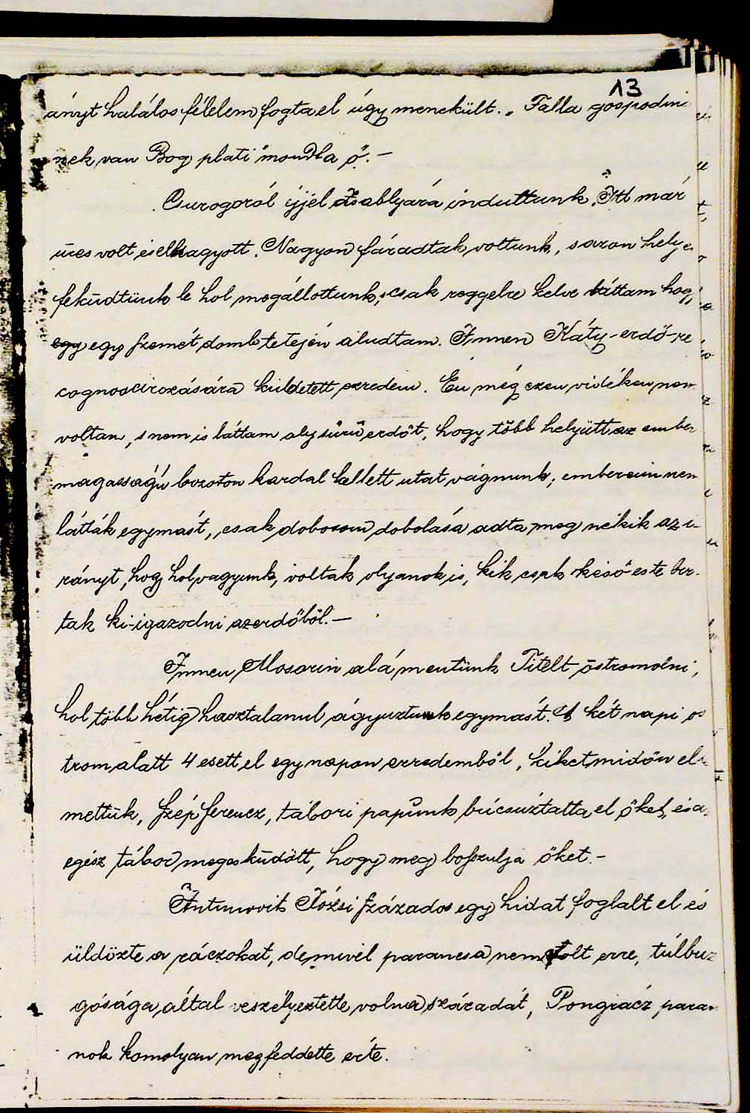 13
ányt halálos félelem fogta el úgy menekült. „ Falla gospodini
nek, van Bog plati" mondta ő. —
Curogoról éjjel Zsablyára induttunk. Itt már
üres volt és elhagyott. Nagyon fáradtak voltunk, saron helye
feküdtünk le hol megállottunk, csak reggelre kelve láttam hogy
egy egy szemét domb tetején aludtam. Innen Káty-erdő-re
cognoscirozására küldetett ezredem. Én még ezen vidéken nem
voltam, s nem is láttam aly sürü erdőt, hogy több helyütt az ember
magasságú bozoton kardal kellett utat vágnunk, embereim nem
látták egymást, csak dobosom dobolása adta meg nékik az i-
rányt, hogy hol vagyunk, voltak olyanok is, kik csak késő este bir-
tak ki-igazodni az erdőből. —
Innen, Mosorin alá mentünk Titelt ostromolni,
hol több hétig hasztalanul ágyuztunk egymást. A két napi os
trom alatt 4 esett el egy napon ezredemből, kiket midőn elte
mettük, Szép Ferencz, tábori papunk búcsúztatta el őket, és a
egész tábor megesküdött, hogy meg boszulja őket. —
Antunovit Józsi százados egy hidat foglalt el és
üldözte a ráczokat, de mivel parancsa nem volt erre, túlbuz
gósága által veszélyeztette volna századát, Pongrácz paran
nok komolyan megfeddette érte.